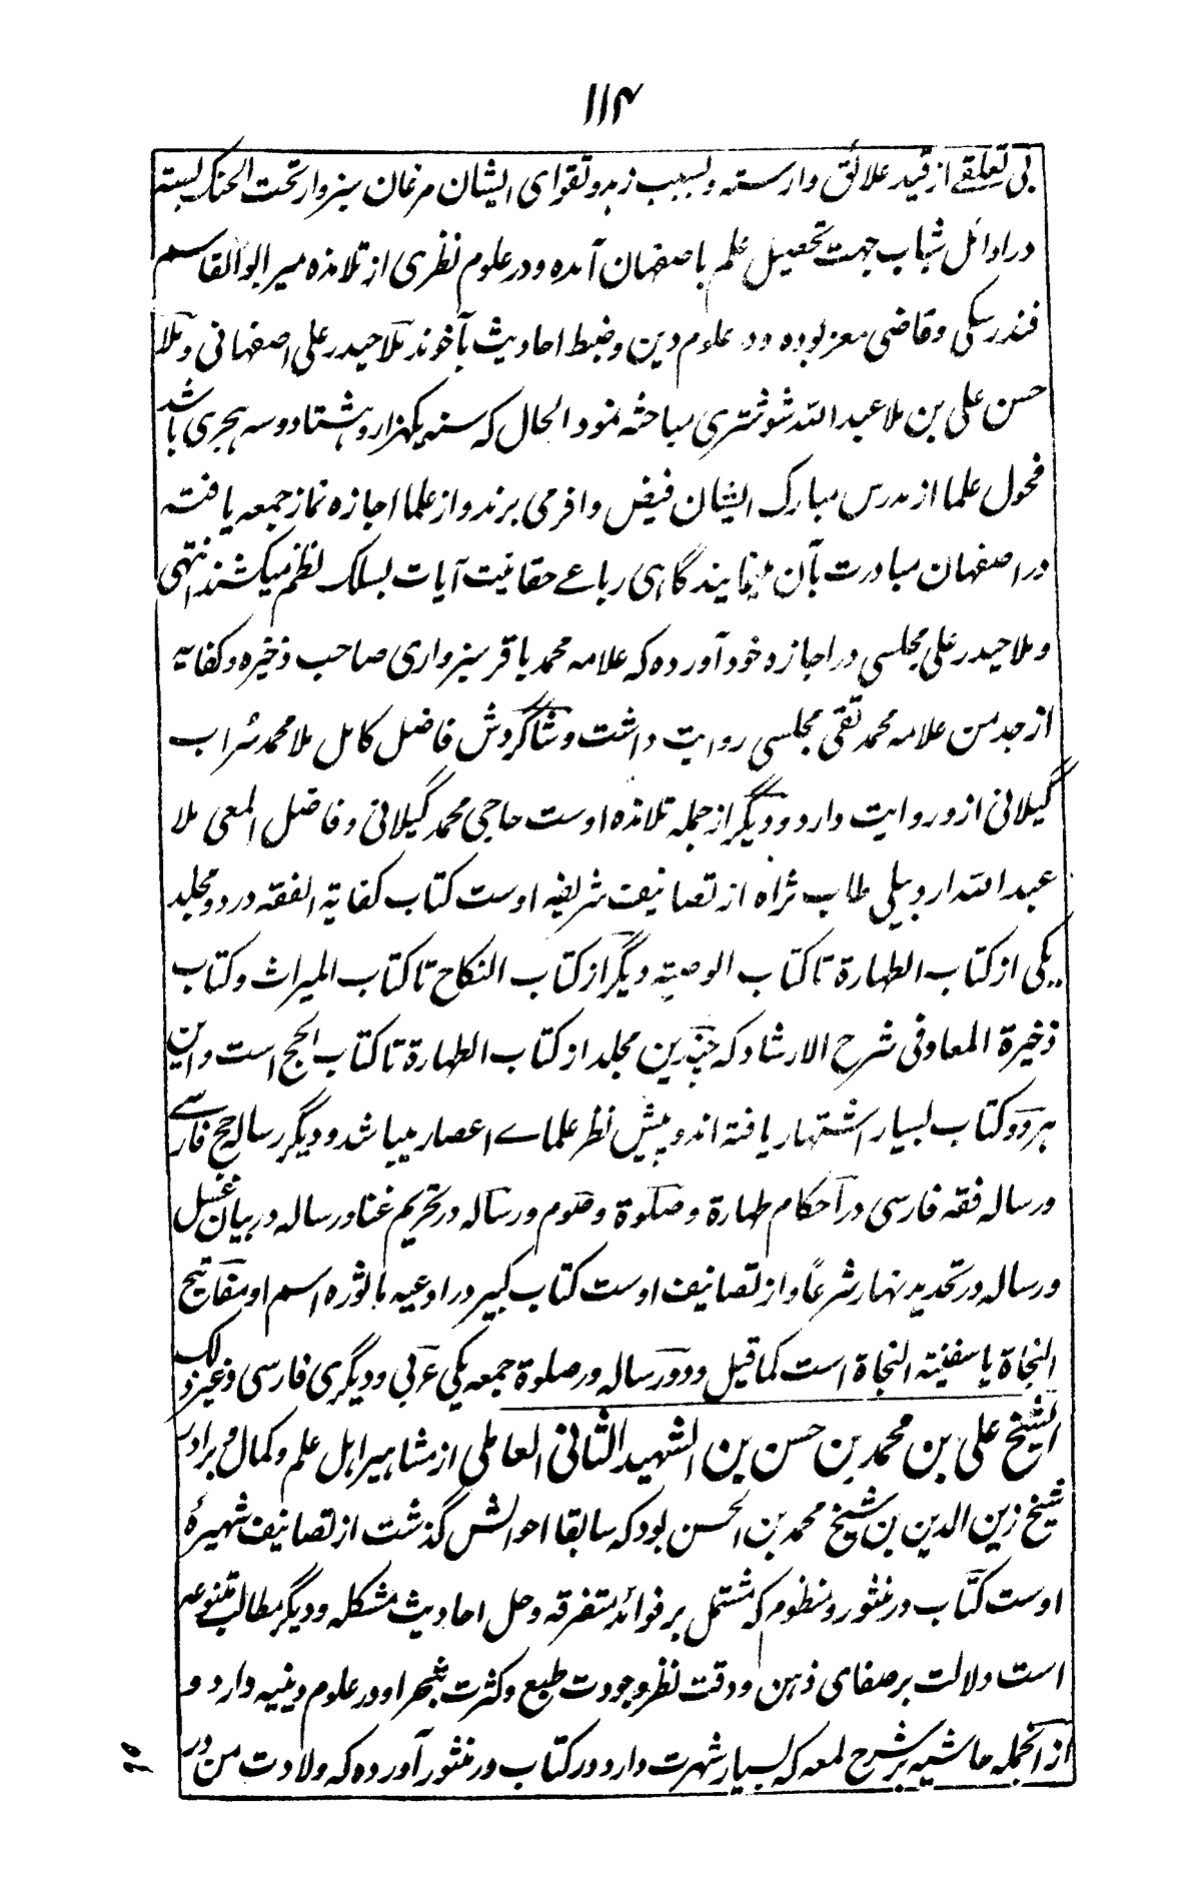 ۱۱۴
بی تعلقے از قید علائق وارسته وبسبب زهد وتقوای ایشان مرغان سبزوار تحت الحنک بسته
در اوائل شباب جهت تحصیل علم باصفهان آمده ودر علوم نظری از تلامذه میر ابوالقاسم
فندرسکی وقاضی معز بوده ودر علوم دین وضبط احادیث بآخوند ملا حیدر علی اصفهانی وملا
حسن علی بن ملا عبد الله شوشتری مباحثه نمود الحال که سنه یکهزار وهشتاد وسه هجری باشد
فحول علما از مدرس مبارک ایشان فیض وافر می برند واز علما اجازه نماز جمعه یافته
در اصفهان مبادرت بآن مینمایند گاهی رباعے حقانیت آیات بسلک نظم میکشند انتهی
وملا حیدر علی مجلسی در اجازه خود آورده که علامه محمد باقر سبزواری صاحب ذخیره وکفایه
از جد من علامه محمد تقی مجلسی روایت داشت وشاگردش فاضل کامل ملا محمد سراب
گیلانی ازو روایت دارد ودیگر از جمله تلامذه اوست حاجی محمد گیلانی وفاضل المعی ملا
عبد الله اردبیلی طاب ثراه از تصانیف شریفه اوست کتاب کفایة الفقه در دو مجلد
یکی از کتاب الطهارة تا کتاب الوصیته دیگر از کتاب النکاح تا کتاب المیراث وکتاب
ذخیرة المعاد فی شرح الارشاد که چندین مجلد از کتاب الطهارة تا کتاب الحج است واین
هر دو کتاب بسیار اشتهار یافته اند وپیش نظر علماے اعصار میباشد ودیگر رساله حج فارسے
ورساله فقه فارسی در احکام طهارة وصلوة وصوم ورساله در تحریم غنا ورساله در بیان غسل
ورساله در تحدید نهار شرعاً واز تصانیف اوست کتاب کبیر در ادعیه ماثوره اسم او مفاتیح
النجاة یا سفینة النجاة است کما قیل ودو رساله در صلوة جمعه یکی عربی ودیگری فارسی وغیر ذلک
الشیخ علی بن محمد بن حسن بن الشهید الثانی العاملی از مشاهیر اهل علم وکمال وبرادر
شیخ زین الدین بن شیخ محمد بن الحسن بود که سابقا احوالش گذشت از تصانیف شهیرهٔ
اوست کتاب در منثور ومنظوم که مشتمل بر فوائد متفرقه وحل احادیث مشکله ودیگر مطالب متنوعه
است دلالت بر صفای ذهن ودقت نظر وجودت طبع وکثرت تبحر او در علوم دینیه دارد و
از انجمله حاشیه بر شرح لمعه که بسیار شهرت دارد ودر کتاب در منثور آورده که ولادت من در